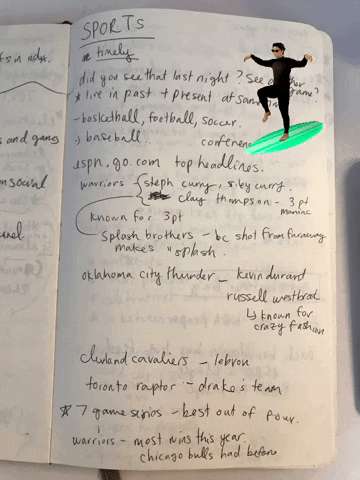 SPORTS
timely
did you see that last night? See
* live in past + present at same
game?
- basketball, football, soccer.
→ baseball.
conferen
espn.go.com top headlines.
warriors { steph curry,
clay thompson - 3 pt
maniac
known for 3pt
splash brothers - bc shot from faraway
makes "splash.
oklahoma city thunder - kevin durard
russell westbrok
↳ known for
crazy fashion
clevland cavaliers - lebron
toronto raptor - drake's team
* 7 game serios - best out of four.
warriors - most wins this year.
chicago bulls had before
fs in
s and games
social